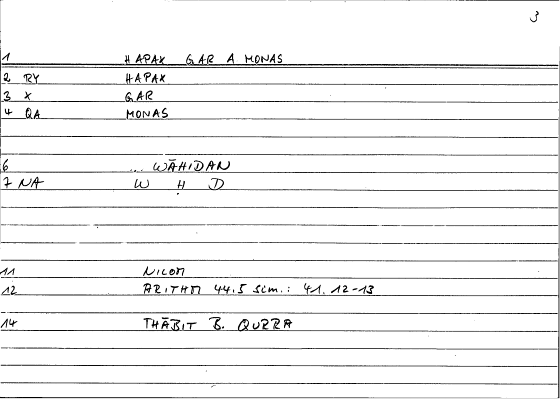 3
1 HAPAX GAR A MONAS
2 RY HAPAX
3 X GAR
4 QA MONAS
6 ... WĀHIDAN
7 NA W Ḥ D
11 NICOM
12 ARITHM 44.5 SIM.: 41.12-13
14 THĀBIT B. QURRA